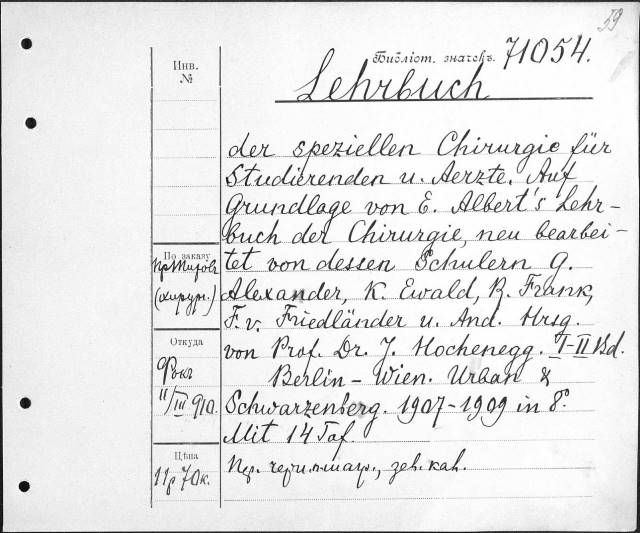 59
Библіот. значекъ. 71054.
Инв.
№
Lehrbuch
der speziellen Chirurgie für
Studierenden u. Aerzte. Auf
Grundlage von E. Albert's Lehr-
buch der Chirurgie, neu bearbei-
tet von dessen Schulern G.
Alexander, K. Ewald, R. Frank,
F. v. Friedländer u. And. Hrsg.
von Prof. Dr. J. Hochenegg. I-II Bd.
Berlin - Wien. Urban &
Schwarzenberg. 1907-1909 in 8°.
Mit 14 Taf.
По заказу
(хирург.)
Откуда
11/III 910.
Цѣна
11 р 70 к.